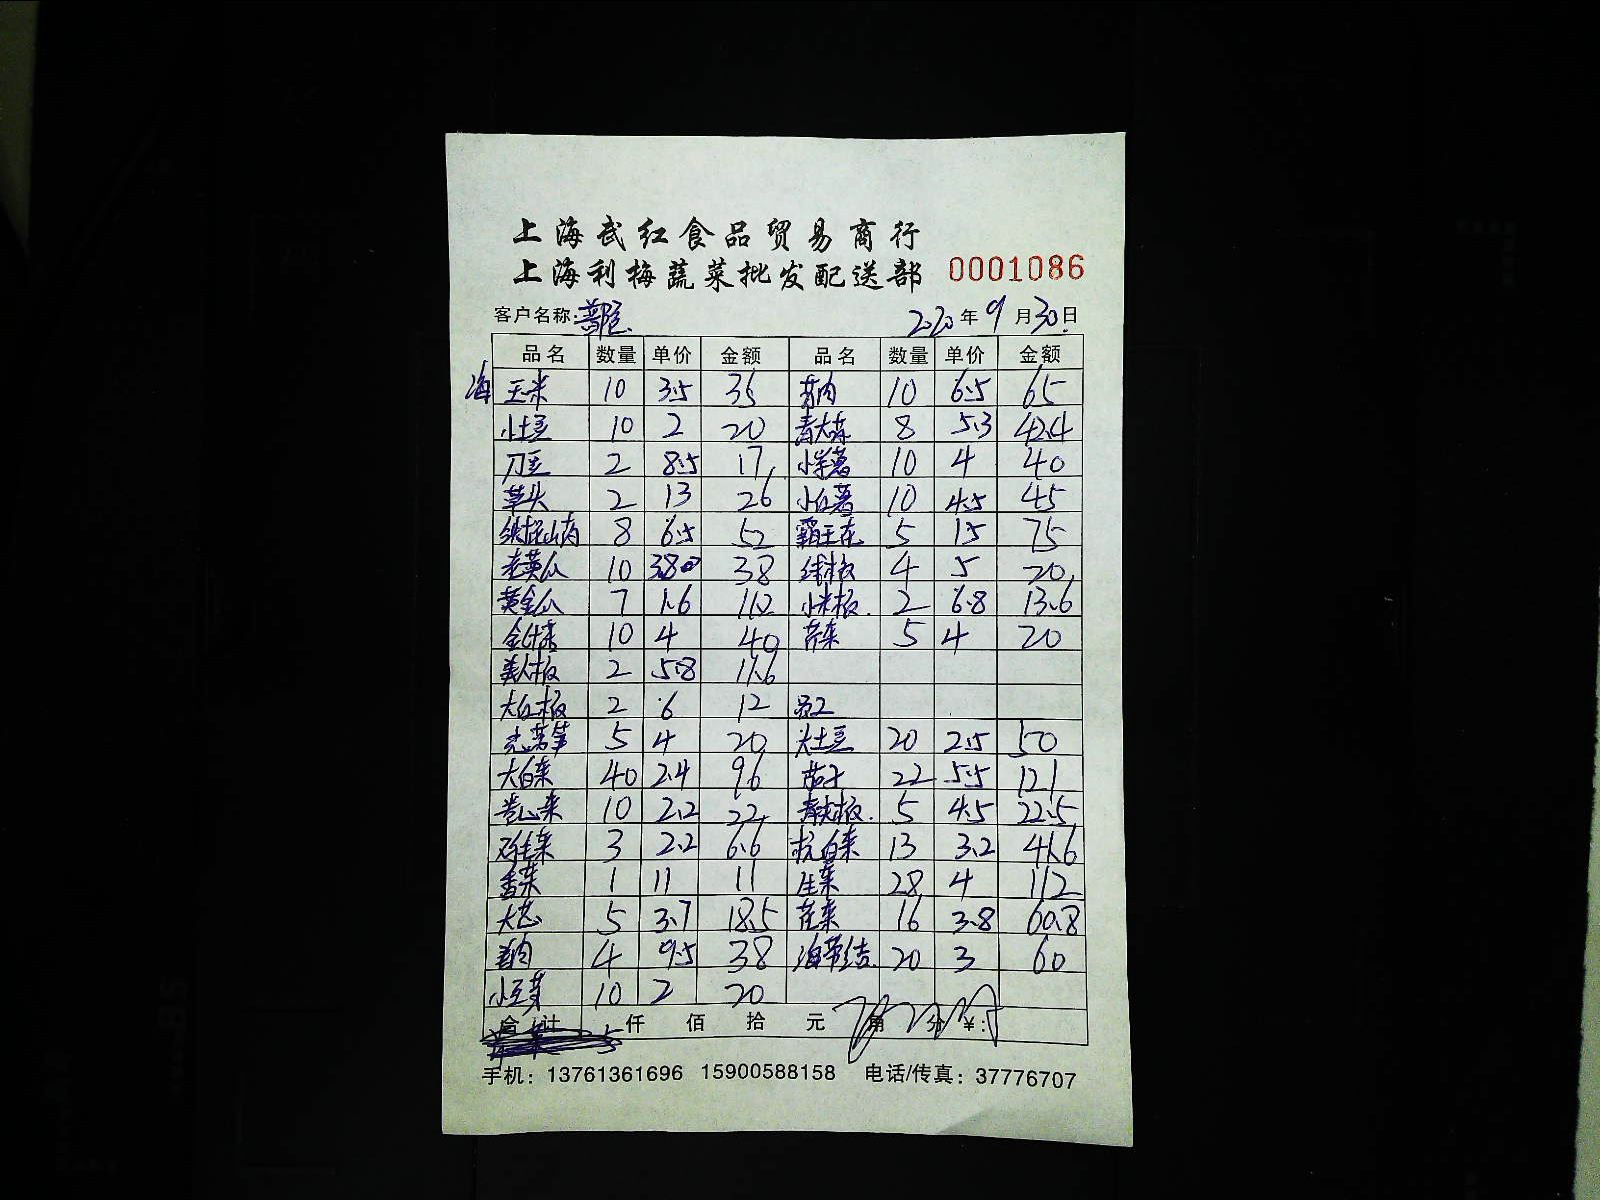 上海武红食品贸易商行
上海利梅蔬菜批发配送部 0001086
客户名称: 2020年9月30日
品名 数量 单价 金额 品名 数量 单价 金额
海 玉米 10 3.5 35 10 6.5 65
小土豆 10 2 20 8 5.3 42.4
刀豆 2 8.5 17 10 4 40
草头 2 13 26 小红薯 10 4.5 45
铁棍山药 8 6.5 52 霸王花 5 15 75
老黄瓜 10 3.80 38 4 5 20
黄金瓜 7 1.6 11.2 小米椒 2 6.8 13.6
10 4 40 芹菜 5 4 20
美人椒 2 5.8 11.6
大红椒 2 6 12 员工
5 4 20 大土豆 20 2.5 50
大白菜 40 2.4 96 茄子 22 5.5 121
卷心菜 10 2.2 22 青大椒 5 4.5 22.5
3 2.2 6.6 杭白菜 13 3.2 41.6
香菜 1 11 11 生菜 28 4 112
大葱 5 3.7 18.5 花菜 16 3.8 60.8
4 9.5 38 海带结 20 3 60
小豆芽 10 2 20
合计 仟 佰 拾 元 角 分 ¥:
5
手机: 13761361696 15900588158 电话/传真: 37776707